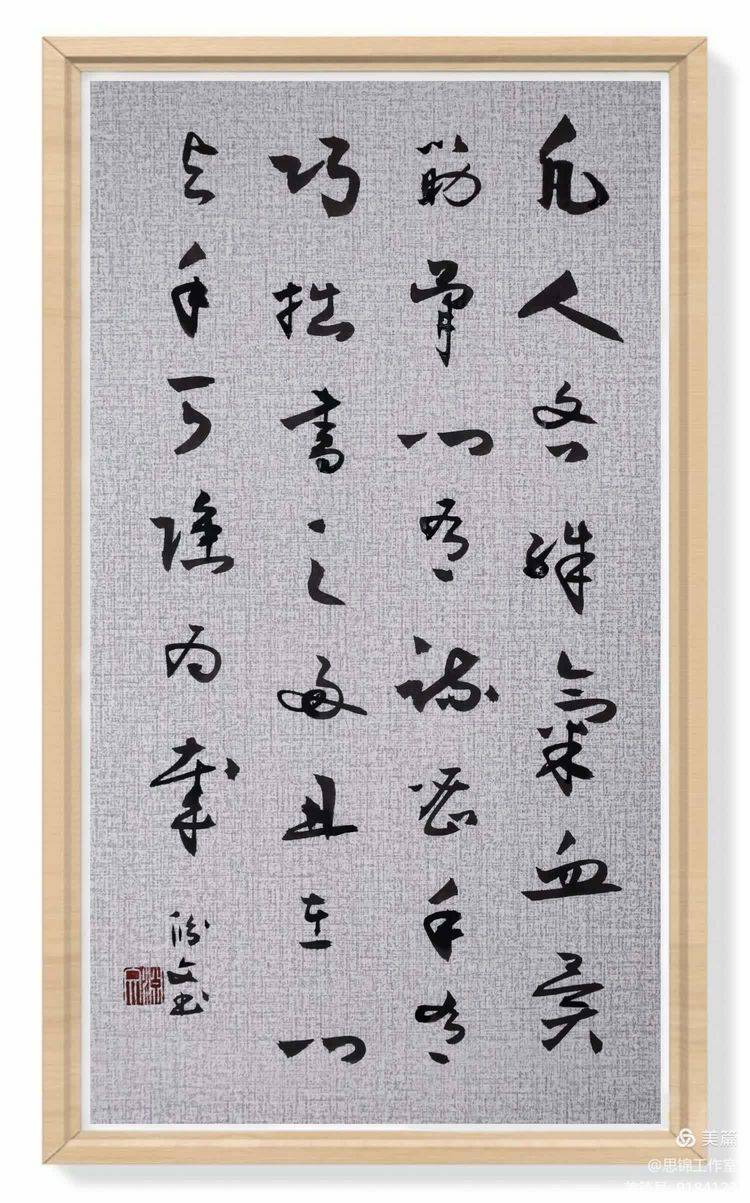 凡人各殊氣血異
筋骨心有疏密手有
巧拙書之好丑在心
与手可強為哉
文书
美篇
@思锦工作室